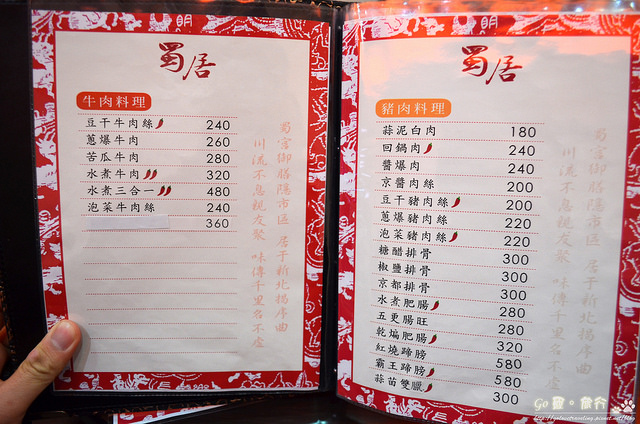 蜀居
牛肉料理
豆干牛肉絲 240
蔥爆牛肉 260
苦瓜牛肉 280
水煮牛肉 320
水煮三合一 480
泡菜牛肉絲 240
360
蜀宮御膳隱市區 居于新北揚序曲
川流不息親友聚 味傳千里名不虛
蜀居
豬肉料理
蒜泥白肉 180
回鍋肉 240
醬爆肉 240
京醬肉絲 200
豆干豬肉絲 200
蔥爆豬肉絲 220
泡菜豬肉絲 220
糖醋排骨 300
椒鹽排骨 300
京都排骨 300
水煮肥腸 280
五更腸旺 280
乾煸肥腸 320
紅燒蹄膀 580
霸王蹄膀 580
蒜苗雙臘 300
蜀宮御膳隱市區 居于新北揚序曲
川流不息親友聚 味傳千里名不虛